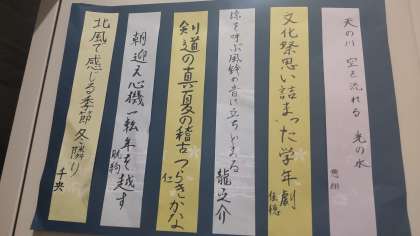 天の川 空を流れる 光の水
文化祭思い詰まった学年劇
佳穂
涼を呼ぶ風鈴の音に立ちどまる
龍之介
剣道の真夏の稽古つらきかな
仁
朝迎え心機一転年を越す
北風で感じる季節冬隣り
千央